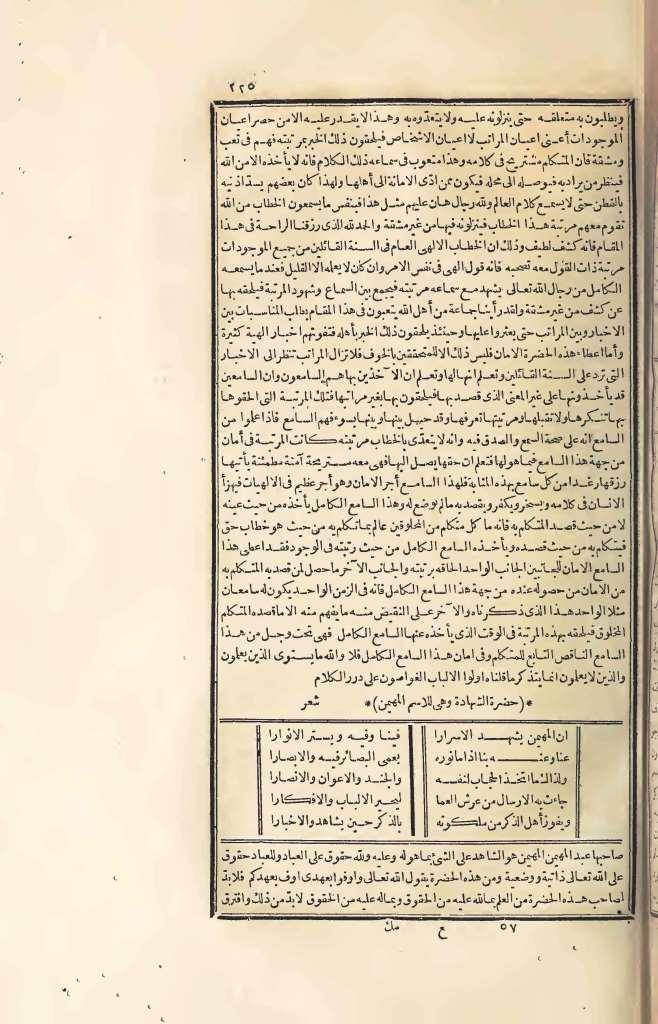 ٢٢٥
ويطلبون به متعلقه حتى ينزلونه عليه ولا يتعدوه به وهذا لا يقدر عليه الا من حصر اعيان
الموجودات أعنى اعيان المراتب لا اعيان الاشخاص فيلحقون ذلك الخبر بمرتبته فهم فى تعب
ومشقة فان المتكلم مستريح فى كلامه وهذا متعوب فى سماعه ذلك الكلام فانه لا يأخذه الا من الله
فينظر من يراد به فيوصله الى محله فيكون ممن ادّى الامانة الى أهلها ولهذا كان بعضهم يسدّ اذنيه
بالقطن حتى لا يسمع كلام العالم ولله رجال هان عليهم مثل هذا فبنفس ما يسمعون الخطاب من الله
تقوم معهم مرتبة هذا الخطاب فينزلونه فيها من غير مشقة والحمد لله الذى رزقنا الراحة فى هذا
المقام فانه كشف لطيف وذلك ان الخطاب الالهى العام فى السنة القائلين من جميع الموجودات
مرتبة ذات القول معه تصحبه فانه قول الهى فى نفس الامر وان كان لا يعلمه الا القليل فعند ما يسمعه
الكامل من رجال الله تعالى يشهد مع سماعه مرتبته فيجمع بين السماع وشهود المرتبة فيلحقه بها
عن كشف من غير مشقة ولقد رأينا جماعة من أهل الله يتعبون فى هذا المقام بطلب المناسبات بين
الاخبار وبين المراتب حتى يعثروا عليها وحينئذ يلحقون ذلك الخبر بأهله فتفوتهم اخبار الهية كثيرة
وأما اعطاء هذه الحضرة الامان فليس ذلك الا للمتحققين بالخوف فلا تزال المراتب تنظر الى الاخبار
التى ترد على السنة القائلين وتعلم انها لها وتعلم ان الآخذين بها هم السامعون وان السامعين
قد يأخذونها على غير المعنى الذى قصد بها فيلحقون بها بغير مراتبها فتلك المرتبة التى الحقوها
بها تنكرها ولا تقبلها ومرتبتها تعرفها وقد حيل بينها وبينها بسوء فهم السامع فاذا علموا من
السامع انه على صحة السمع والصدق فيه وانه لا يتعدّى بالخطاب مرتبته كانت المرتبة فى أمان
من جهة هذا السامع فيما هو لها فتعلم ان حقها يصل اليها فهى معه مستريحة آمنة مطمئنة يأتيها
رزقها رغدا من كل سامع بهذه المثابة فلهذا السامع أجر الامان وهو أجر عظيم فى الالهيات فيهزأ
الانسان فى كلامه ويسخر ويكفر ويقصد به مالم يوضع له وهذا السامع الكامل يأخذه من حيث عينه
لا من حيث قصد المتكلم به فانه ما كل متكلم من المخلوقين عالم بما تكلم به من حيث هو خطاب حق
فيتكلم به من حيث قصده ويأخذه السامع الكامل من حيث رتبته فى الوجود فقد اعطى هذا
السامع الامان للجانبين الجانب الواحد الحاقه برتبته والجانب الآخر ما حصل لمن قصد به المتكلم به
من الامان من حصوله عنده من جهة هذا السامع الكامل فانه فى الزمن الواحد يكون له سامعان
مثلا الواحد هذا الذى ذكرناه والآخر على النقيض منه ما يفهم منه الا ما قصده المتكلم
المخلوق فيلحقه بهذه المرتبة فى الوقت الذى يأخذه عنها السامع الكامل فهى تحت وجل من هذا
السامع الناقص التابع للمتكلم وفى امان هذا السامع الكامل فلا والله ما يستوى الذين يعلمون
والذين لا يعلمون انما يتذكر ما قلناه اولوا الالباب الغواصون على درر الكلام
*(حضرة الشهادة وهى للاسم المهيمن)* شعر
ان المهيمن يشهد الاسرارا فينا وفيه ويستر الانوارا
عنا وعنه بنا اذا ما نوره يعمى البصائر فيه والابصارا
ولذا لنا اتخذ الحجاب لنفسه والجند والاعوان والانصارا
جاءت به الارسال من عرش العما ليحير الالباب والافكارا
ويفوز أهل الذكر من ملكوته بالذكر حين يشاهد والاخبارا
صاحبها عبد المهيمن المهيمن هو الشاهد على الشئ بما هو له وعليه ولله حقوق على العباد وللعباد حقوق
على الله تعالى ذاتية ووضعية ومن هذه الحضرة يقول الله تعالى واوفوا بعهدى اوف بعهدكم فلا بدّ
لصاحب هذه الحضرة من العلم بما لله عليه من الحقوق وبما له عليه من الحقوق لا بدّ من ذلك وافترق
٥٧ ع مك